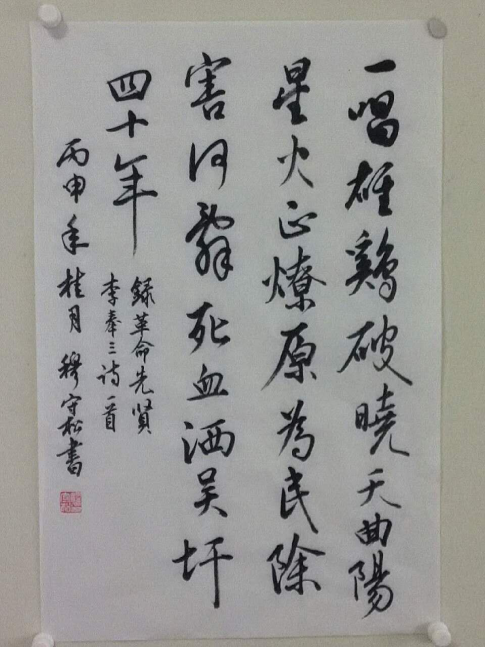 一唱雄鷄破曉天曲陽
星火正燎原為民除
害何辭死血洒吴圩
四十年
録革命先賢
李奉三诗一首
丙申年桂月穆守松書